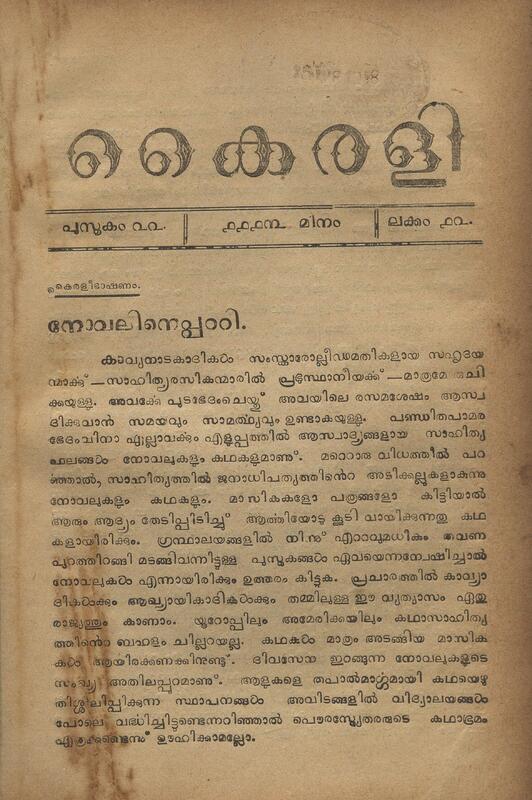 കൈരളി
പുസ്തകം ൨൨. ൧൧൧൩ മീനം ലക്കം ൧൨.
കൈരളീഭാഷണം.
നോവലിനെപ്പററി.
കാവ്യനാടകാദികൾ സംസ്കാരോല്ലീഢമതികളായ സഹൃദയ
ന്മാക്ക്—സാഹിത്യരസികന്മാരിൽ പ്രഥമസ്ഥാനീയക്ക്—മാത്രമേ രുചി
ക്കയുള്ളൂ. അവക്കേ പുടഭേദംചെയ്തു് അവയിലെ രസമശേഷം ആസ്വ
ദിക്കുവാൻ സമയവും സാമത്ഥ്യവും ഉണ്ടാകയുള്ളൂ. പണ്ഡിതപാമര
ഭേദംവിനാ എല്ലാവക്കും എളുപ്പത്തിൽ ആസ്വാദ്യങ്ങളായ സാഹിത്യ
ഫലങ്ങൾ നോവലുകളും കഥകളുമാണു്. മറെറാരു വിധത്തിൽ പറ
ഞ്ഞാൽ, സാഹിത്യത്തിൽ ജനാധിപത്യത്തിൻെറ അടിക്കല്ലുകളാകുന്നു
നോവലുകളും കഥകളും. മാസികകളോ പത്രങ്ങളോ കിട്ടിയാൽ
ആരും ആദ്യം തേടിപ്പിടിച്ചു് ആത്തിയോടു കൂടി വായിക്കുന്നതു കഥ
കളായിരിക്കും. ഗ്രന്ഥാലയങ്ങളിൽ നിന്നു് എററവുമധികം തവണ
പുറത്തിറങ്ങി മടങ്ങിവന്നിട്ടുള്ള പുസ്തകങ്ങൾ ഏവയെന്നന്വേഷിച്ചാൽ
നോവലുകൾ എന്നായിരിക്കും ഉത്തരം കിട്ടുക. പ്രചാരത്തിൽ കാവ്യാ
ദികൾക്കും ആഖ്യായികാദികൾക്കും തമ്മിലുള്ള ഈ വ്യത്യാസം ഏതു
രാജ്യത്തും കാണാം. യൂറോപ്പിലും അമേരിക്കയിലും കഥാസാഹിത്യ
ത്തിൻെറ ബഹളം ചില്ലറയല്ല. കഥകൾ മാത്രം അടങ്ങിയ മാസിക
കൾ ആയിരക്കണക്കിനുണ്ടു്. ദിവസേന ഇറങ്ങുന്ന നോവലുകളുടെ
സംഖ്യ അതിലപ്പുറമാണു്. ആളുകളെ തപാൽമാർഗ്ഗമായി കഥയെഴു
തിശ്ശീലിപ്പിക്കുന്ന സ്ഥാപനങ്ങൾ അവിടങ്ങളിൽ വിദ്യാലയങ്ങൾ
പോലെ വദ്ധിച്ചിട്ടുണ്ടെന്നറിഞ്ഞാൽ പൌരസ്ത്യേതരരുടെ കഥാഭ്രമം
എത്രക്കുണ്ടെന്നു് ഊഹിക്കാമല്ലോ.